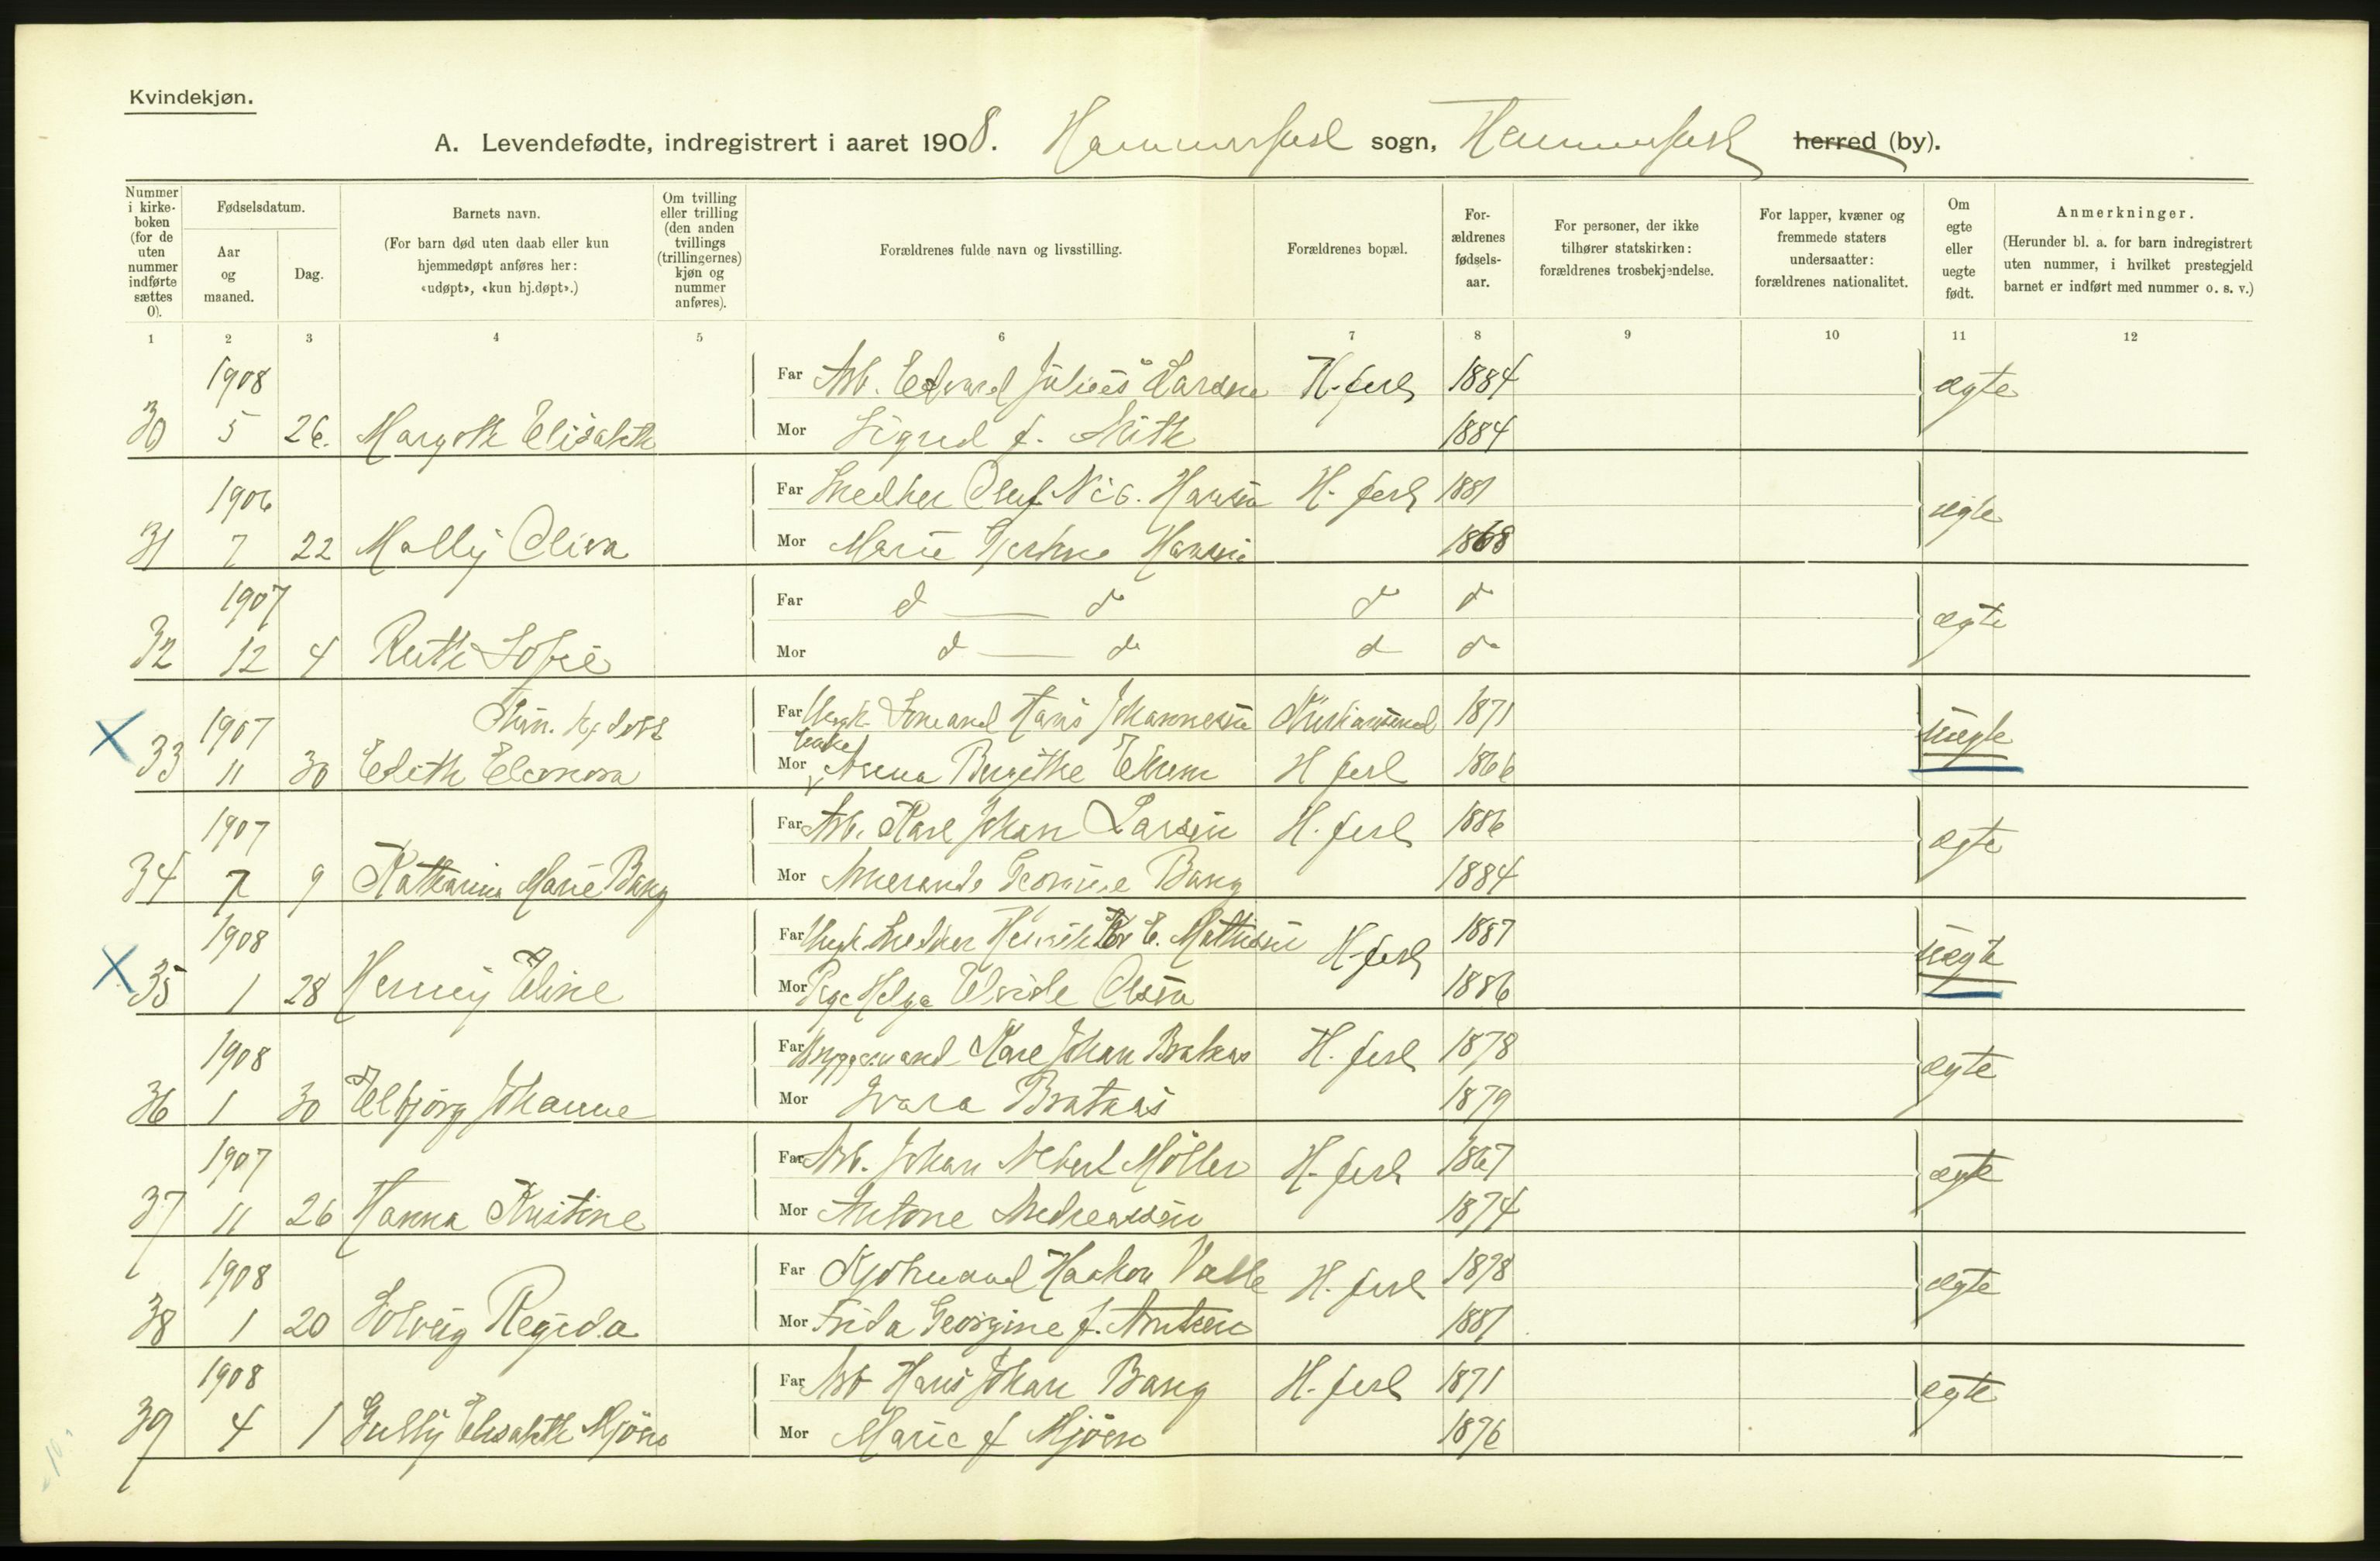 Kvindekjøn.
A. Levendefødte, indregistrert i aaret 1908. Hammerfest sogn, Hammerfest herred (by).
Nummer i kirkeboken (for de uten nummer indførte sættes 0).
Fødselsdatum.
Aar og maaned.
Dag.
Barnets navn.
(For barn død uten daab eller kun hjemmedøpt anføres her: «udøpt», «kun hj.døpt».)
Om tvilling eller trilling (den anden tvillings (trillingernes) kjøn og nummer anføres).
Forældrenes fulde navn og livsstilling.
Forældrenes bopæl.
For-ældrenes fødsels-aar.
For personer, der ikke tilhører statskirken: forældrenes trosbekjendelse.
For lapper, kvæner og fremmede staters undersaatter: forældrenes nationalitet.
Om egte eller uegte født.
Anmerkninger.
(Herunder bl. a. for barn indregistrert uten nummer, i hvilket prestegjeld barnet er indført med nummer o. s. v.)
1 2 3 4 5 6 7 8 9 10 11 12
1908 Far Arb. Edvard Julius Larsen H.fest 1884 ægte
30 5 26. Margoth Elisabeth Mor Sigrid f. 1884
1906 Far Snedker Oluf Nic. Hansen H. fest 1881 ægte
31 7 22 Molly Oliva Mor Marie Hansen 1868
1907 Far d — do d do ægte
32 12 4 Ruth Sofie Mor d — do d do
1907 Far Ungk. Hans Johannesen Kristiansund 1871 uegte
X 33 11 30 Edith Eleonora Mor Enke Anna Birgithe H fest 1866
1907 Far Arb. Karl Johan Larsen H. fest 1886 ægte
34 7 9 Katharina Marie Bang Mor Bang 1884
1908 Far Ungk. Snedker Henrik E. Mathisen H.fest 1887 uægte
X 35 1 28 Henny Eline Mor Pige Helga Olsen 1886
1908 Far Bryggemand Karl Johan Brataas H. fest 1878 ægte
36 1 30 Elbjörg Johanne Mor Ivara Brataas 1879
1907 Far Arb. Johan Albert Möller H. fest 1867 ægte
37 11 26 Hanna Kristine Mor Antone Andreassen 1874
1908 Far Kjøbmand Haakon Valle H. fest 1878 ægte
38 1 20 Solveig Regida Mor Frida Georgine f. Arntsen 1881
1908 Far Arb Hans Johan Bang H. fest 1871 ægte
39 4 1 Gully Elisabeth Mjöen Mor Marie f Mjöen 1876